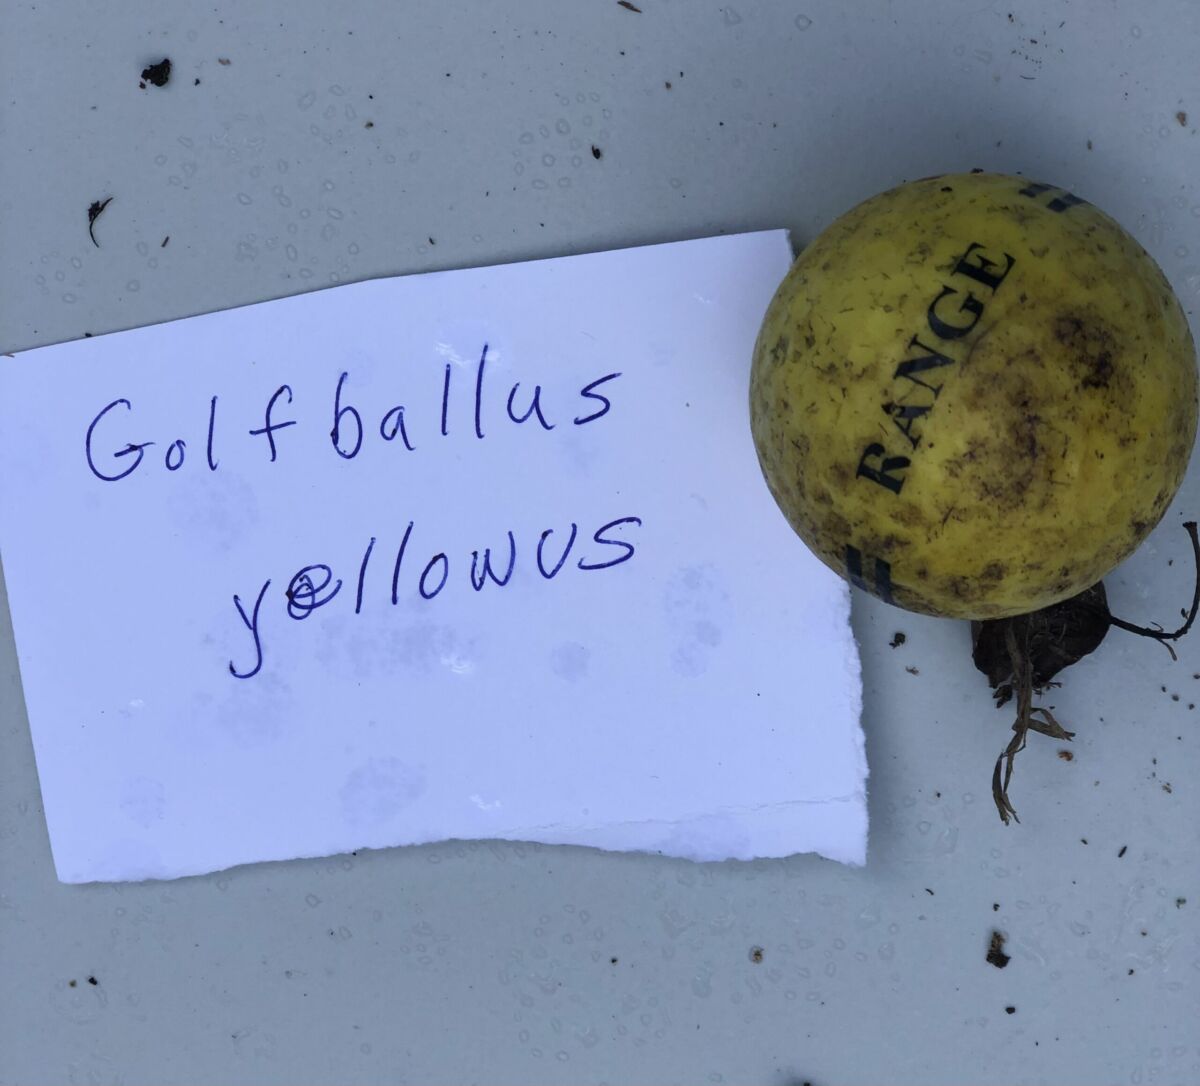 Golfballus
yellowus
RANGE